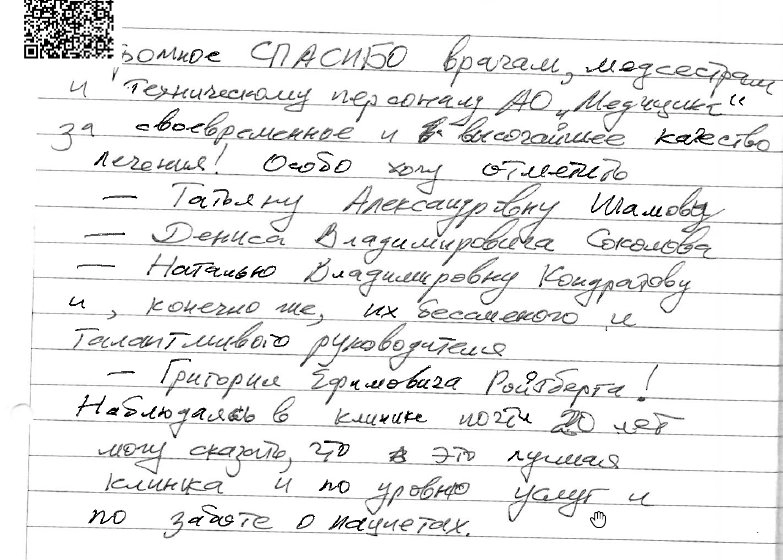 ромное СПАСИБО врачам, медсестрам
и техническому персоналу АО „Медицина"
за своевременное и высочайшее качество
лечения! Особо хочу отметить
— Татьяну Александровну Шамову
— Дениса Владимировича Соколова
— Наталью Владимировну Кондратову
и, конечно же, их бессменого и
талантливого руководителя
— Григория Ефимовича Ройтберга!
Наблюдаясь в клинике почти 20 лет
могу сказать, что это лучшая
клиника и по уровню услуг и
по заботе о пациетах.